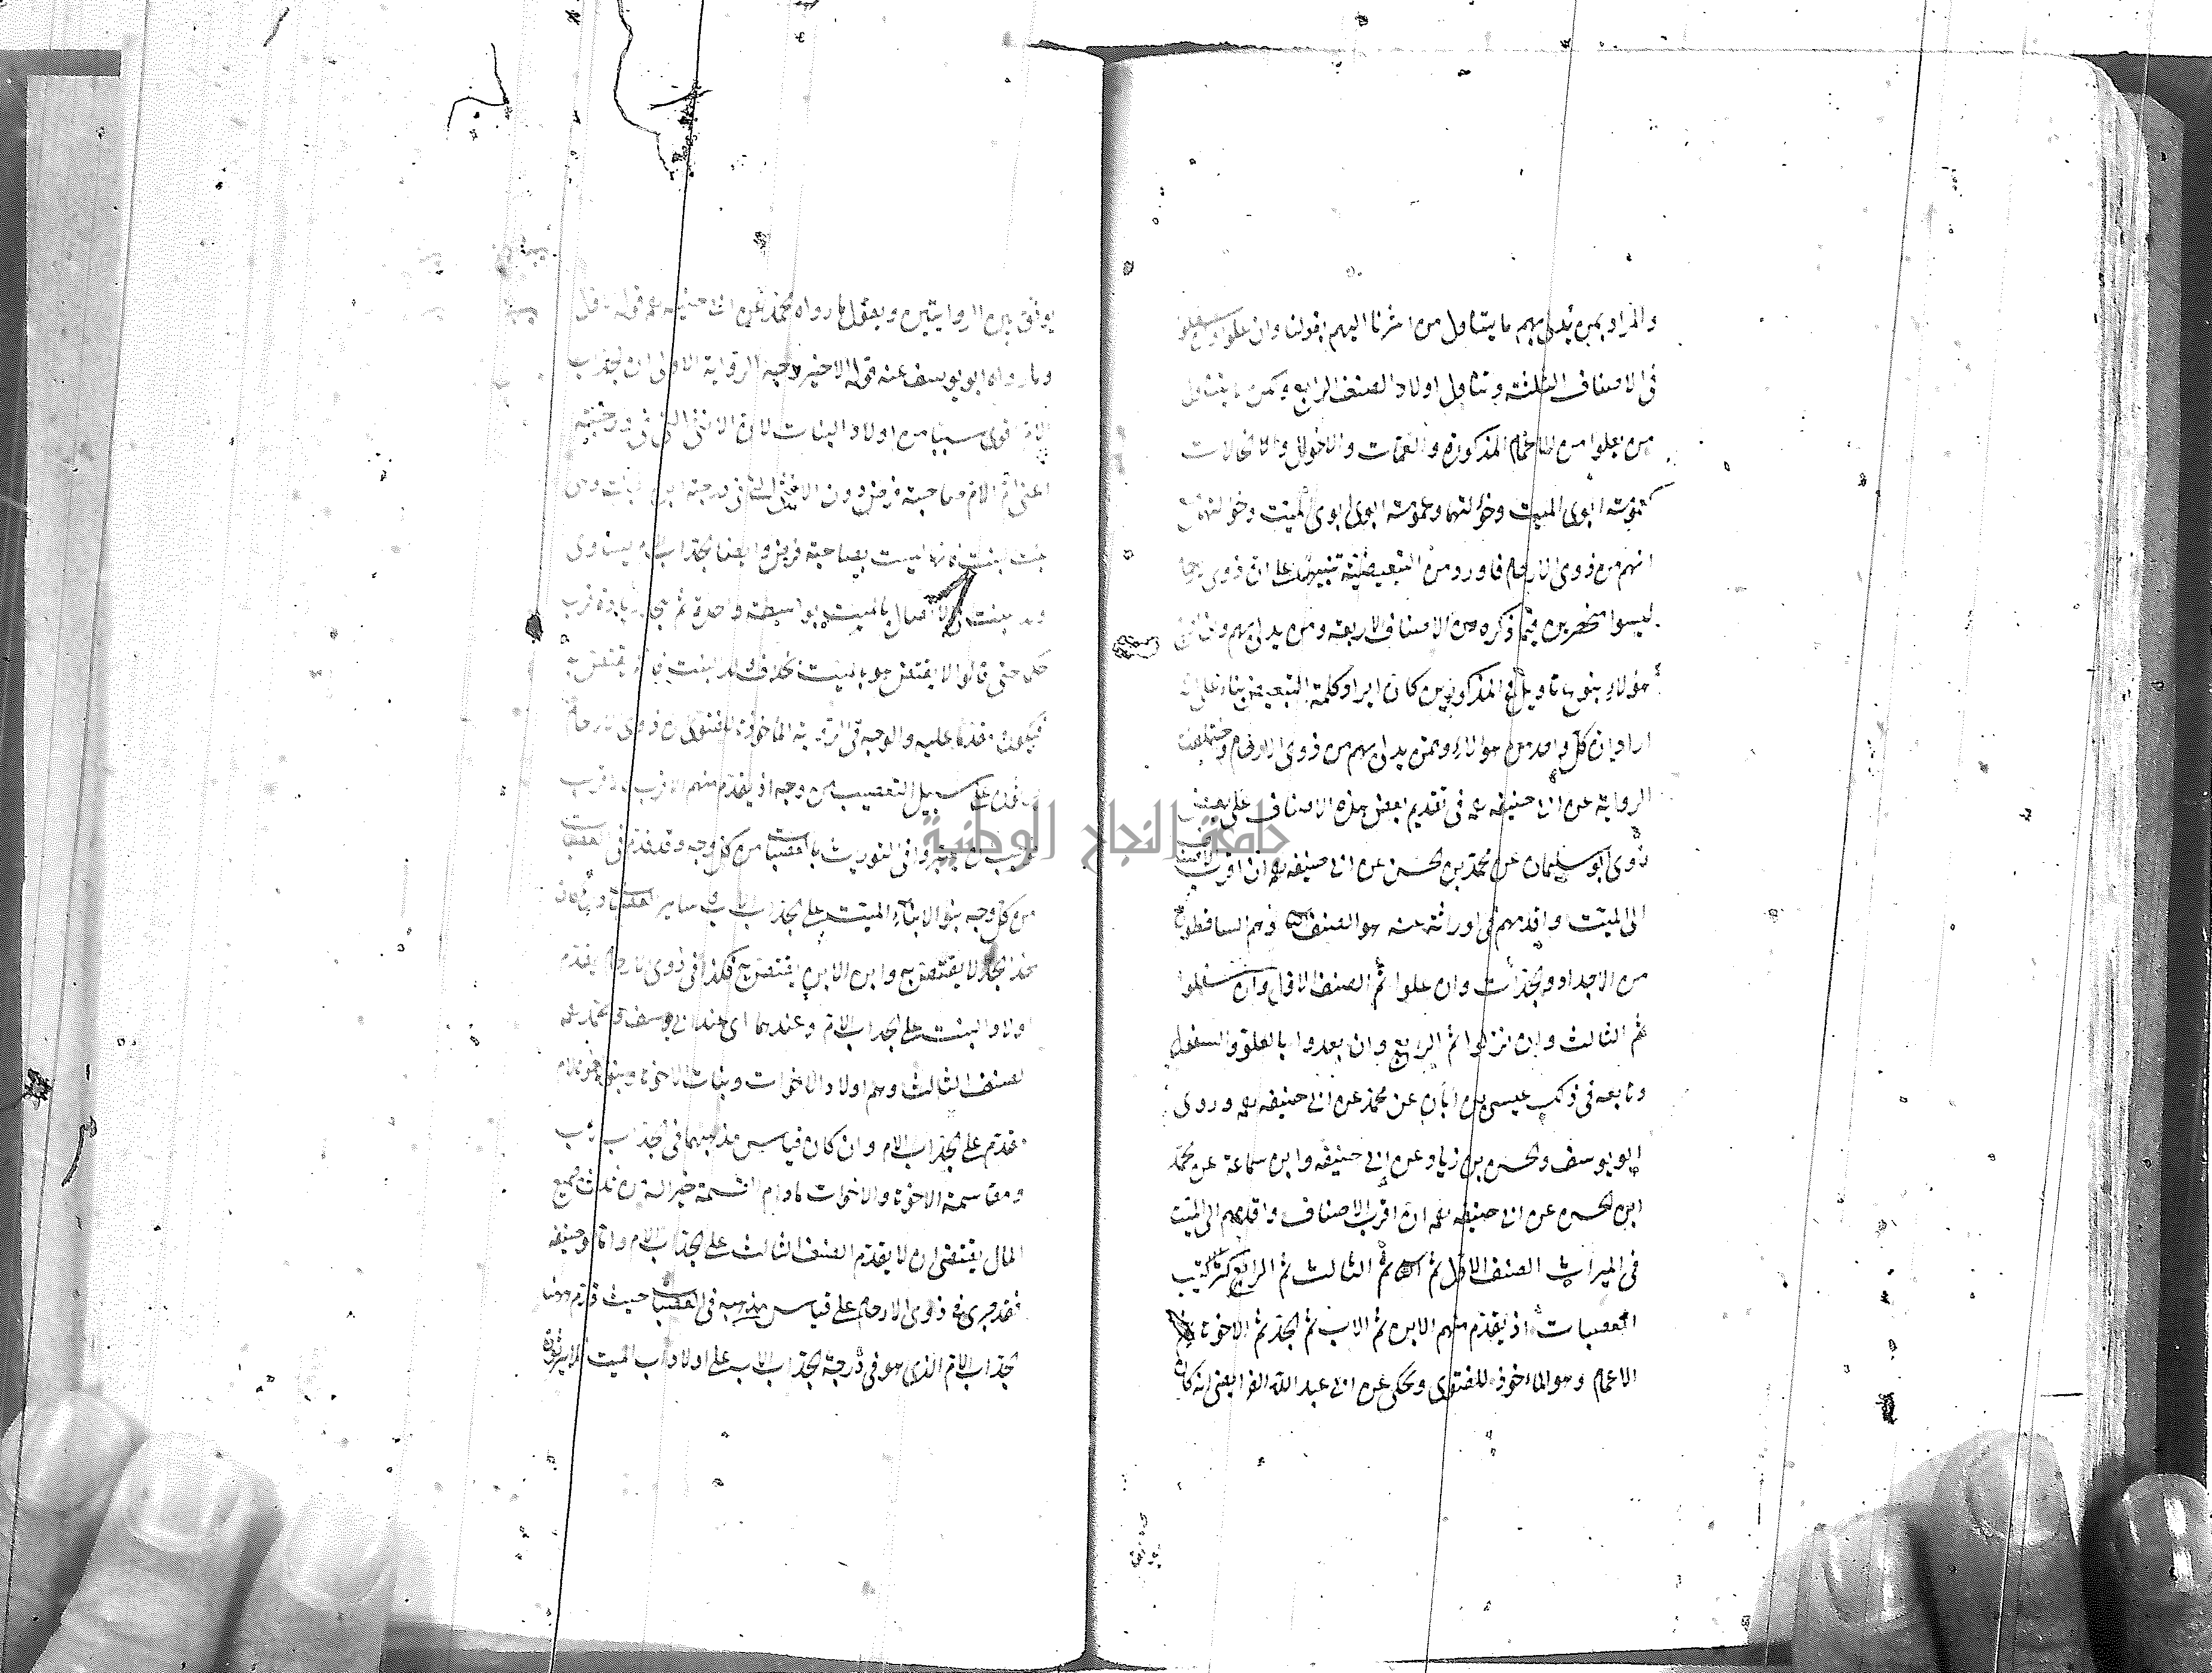 والمراد بمن يدلى بهم ما يتناول من اشرنا اليهم بقولنا وان علوا او سفلوا
فى الاصناف الثلثة ويتناول اولاد الصنف الرابع وكمن يتناول
من يعلوا من الاعمام المذكورة والعمات والاخوال والخالات
كعمومة ابوى الميت وخؤلتهما وعمومة ابوى ابوى الميت وخؤلتهما
انهم من ذوى الارحام فاورد من التبعيضية تنبيها على ان ذوى الارحام
ليسوا منحصرين فيما ذكره من الاصناف الاربعة ومن يدلى بهم
هؤلاء بنوع تاويل فى المذكورين كان ايراد كلمة التبعيض بناء على ان
اراد ان كل واحد من هؤلاء وممن يدلى بهم من ذوى الارحام واختلفت
الرواية عن ابى حنيفه رحمه فى تقديم بعض هذه الاصناف على بعض
فروى ابو سليمان عن محمد بن الحسن عن ابى حنيفه رحمه ان اقرب الاصناف
الى الميت واقدمهم فى الوراثة عنه هو الصنف الثانى وهم الساقطون
من الاجداد والجدات وان علوا ثم الصنف الاول وان سفلوا
ثم الثالث وان نزلوا ثم الرابع وان بعدوا بالعلو والسفول
وتابعه فى ذلك عيسى بن ابان عن محمد عن ابى حنيفه رحمه وروى
ابو يوسف والحسن بن زياد عن ابى حنيفه وابن سماعة عن محمد
ابن الحسن عن ابى حنيفه رحمه ان اقرب الاصناف واقدمهم الى الميت
فى الميراث الصنف الاول ثم الثانى ثم الثالث ثم الرابع كترتيب
العصبات اذ يقدم منهم الابن ثم الاب ثم الجد ثم الاخوة ثم
الاعمام وهو الماخوذ للفتوى وحكى عن ابى عبد الله الفرايضى انه كان
يوفق
يوفق بين الروايتين ويقول ما رواه محمد عن ابى حنيفه رحمه قوله الاول
وما رواه ابو يوسف عنه قوله الاخير وجه الرواية الاولى ان الجد اب
الام اقوى سببا من اولاد البنات لان الانثى التى فى درجته
اعنى ام الام صاحبة فرض دون الانثى التى فى درجة ابن البنت وهى
بنت البنت فانها ليست بصاحبة فرض وايضا الجد اب الام يساوى
ولد البنت فى الاتصال بالميت بواسطة واحدة ثم يترجح بزيادة قرب
حتى قالوا لا يقتص هو بالميت بخلاف ولد البنت فانه يقتص به
فيكون مقدما عليه والوجه فى الرواية الماخوذة للفتوى ان ذوى الارحام
يرثون على سبيل التعصيب من وجه اذ يقدم منهم الاقرب فالاقرب
فيجب ان يعتبروا فى التوريث بالعصبات من كل وجه وقد قدم فى العصبات
من كل وجه بنوا الابناء الميت على الجد اب الاب وسائر العصبات
هذا الجد لا يقتص به وابن الابن يقتص به فكذا فى ذوى الارحام يقدم
اولاد البنت على الجد اب الام وعندهما اى عند ابى يوسف ومحمد رحمه
الصنف الثالث وهم اولاد الاخوات وبنات الاخوة وبنو الاخوة لام
مقدم على الجد اب الام وان كان قياس مذهبهما فى الجد اب الاب
ومقاسمة الاخوة والاخوات مادام القسمة خيرا له من ثلث جميع
المال يقتضى ان لا يقدم الصنف الثالث على الجد اب الام واما ابو حنيفه
فقد جرى فى ذوى الارحام على قياس مذهبه فى العصبات حيث قدم ههنا
الجد اب الام الذى هو فى درجة الجد اب الاب على اولاد اب الميت
جامعة النجاح الوطنية